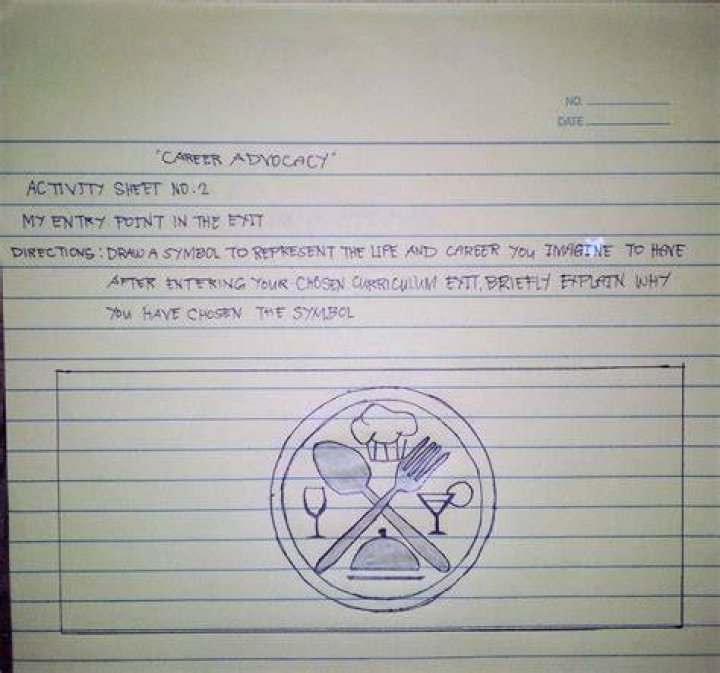 NO.
DATE
"CAREER ADVOCACY"
ACTIVITY SHEET NO. 2
MY ENTRY POINT IN THE EXIT
DIRECTIONS: DRAW A SYMBOL TO REPRESENT THE LIFE AND CAREER YOU IMAGINE TO HAVE
AFTER ENTERING YOUR CHOSEN CURRICULUM EXIT. BRIEFLY EXPLAIN WHY
YOU HAVE CHOSEN THE SYMBOL